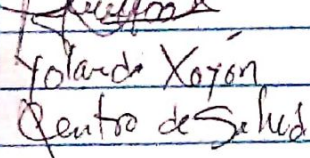 Yolanda Xoyón
Centro de Salud